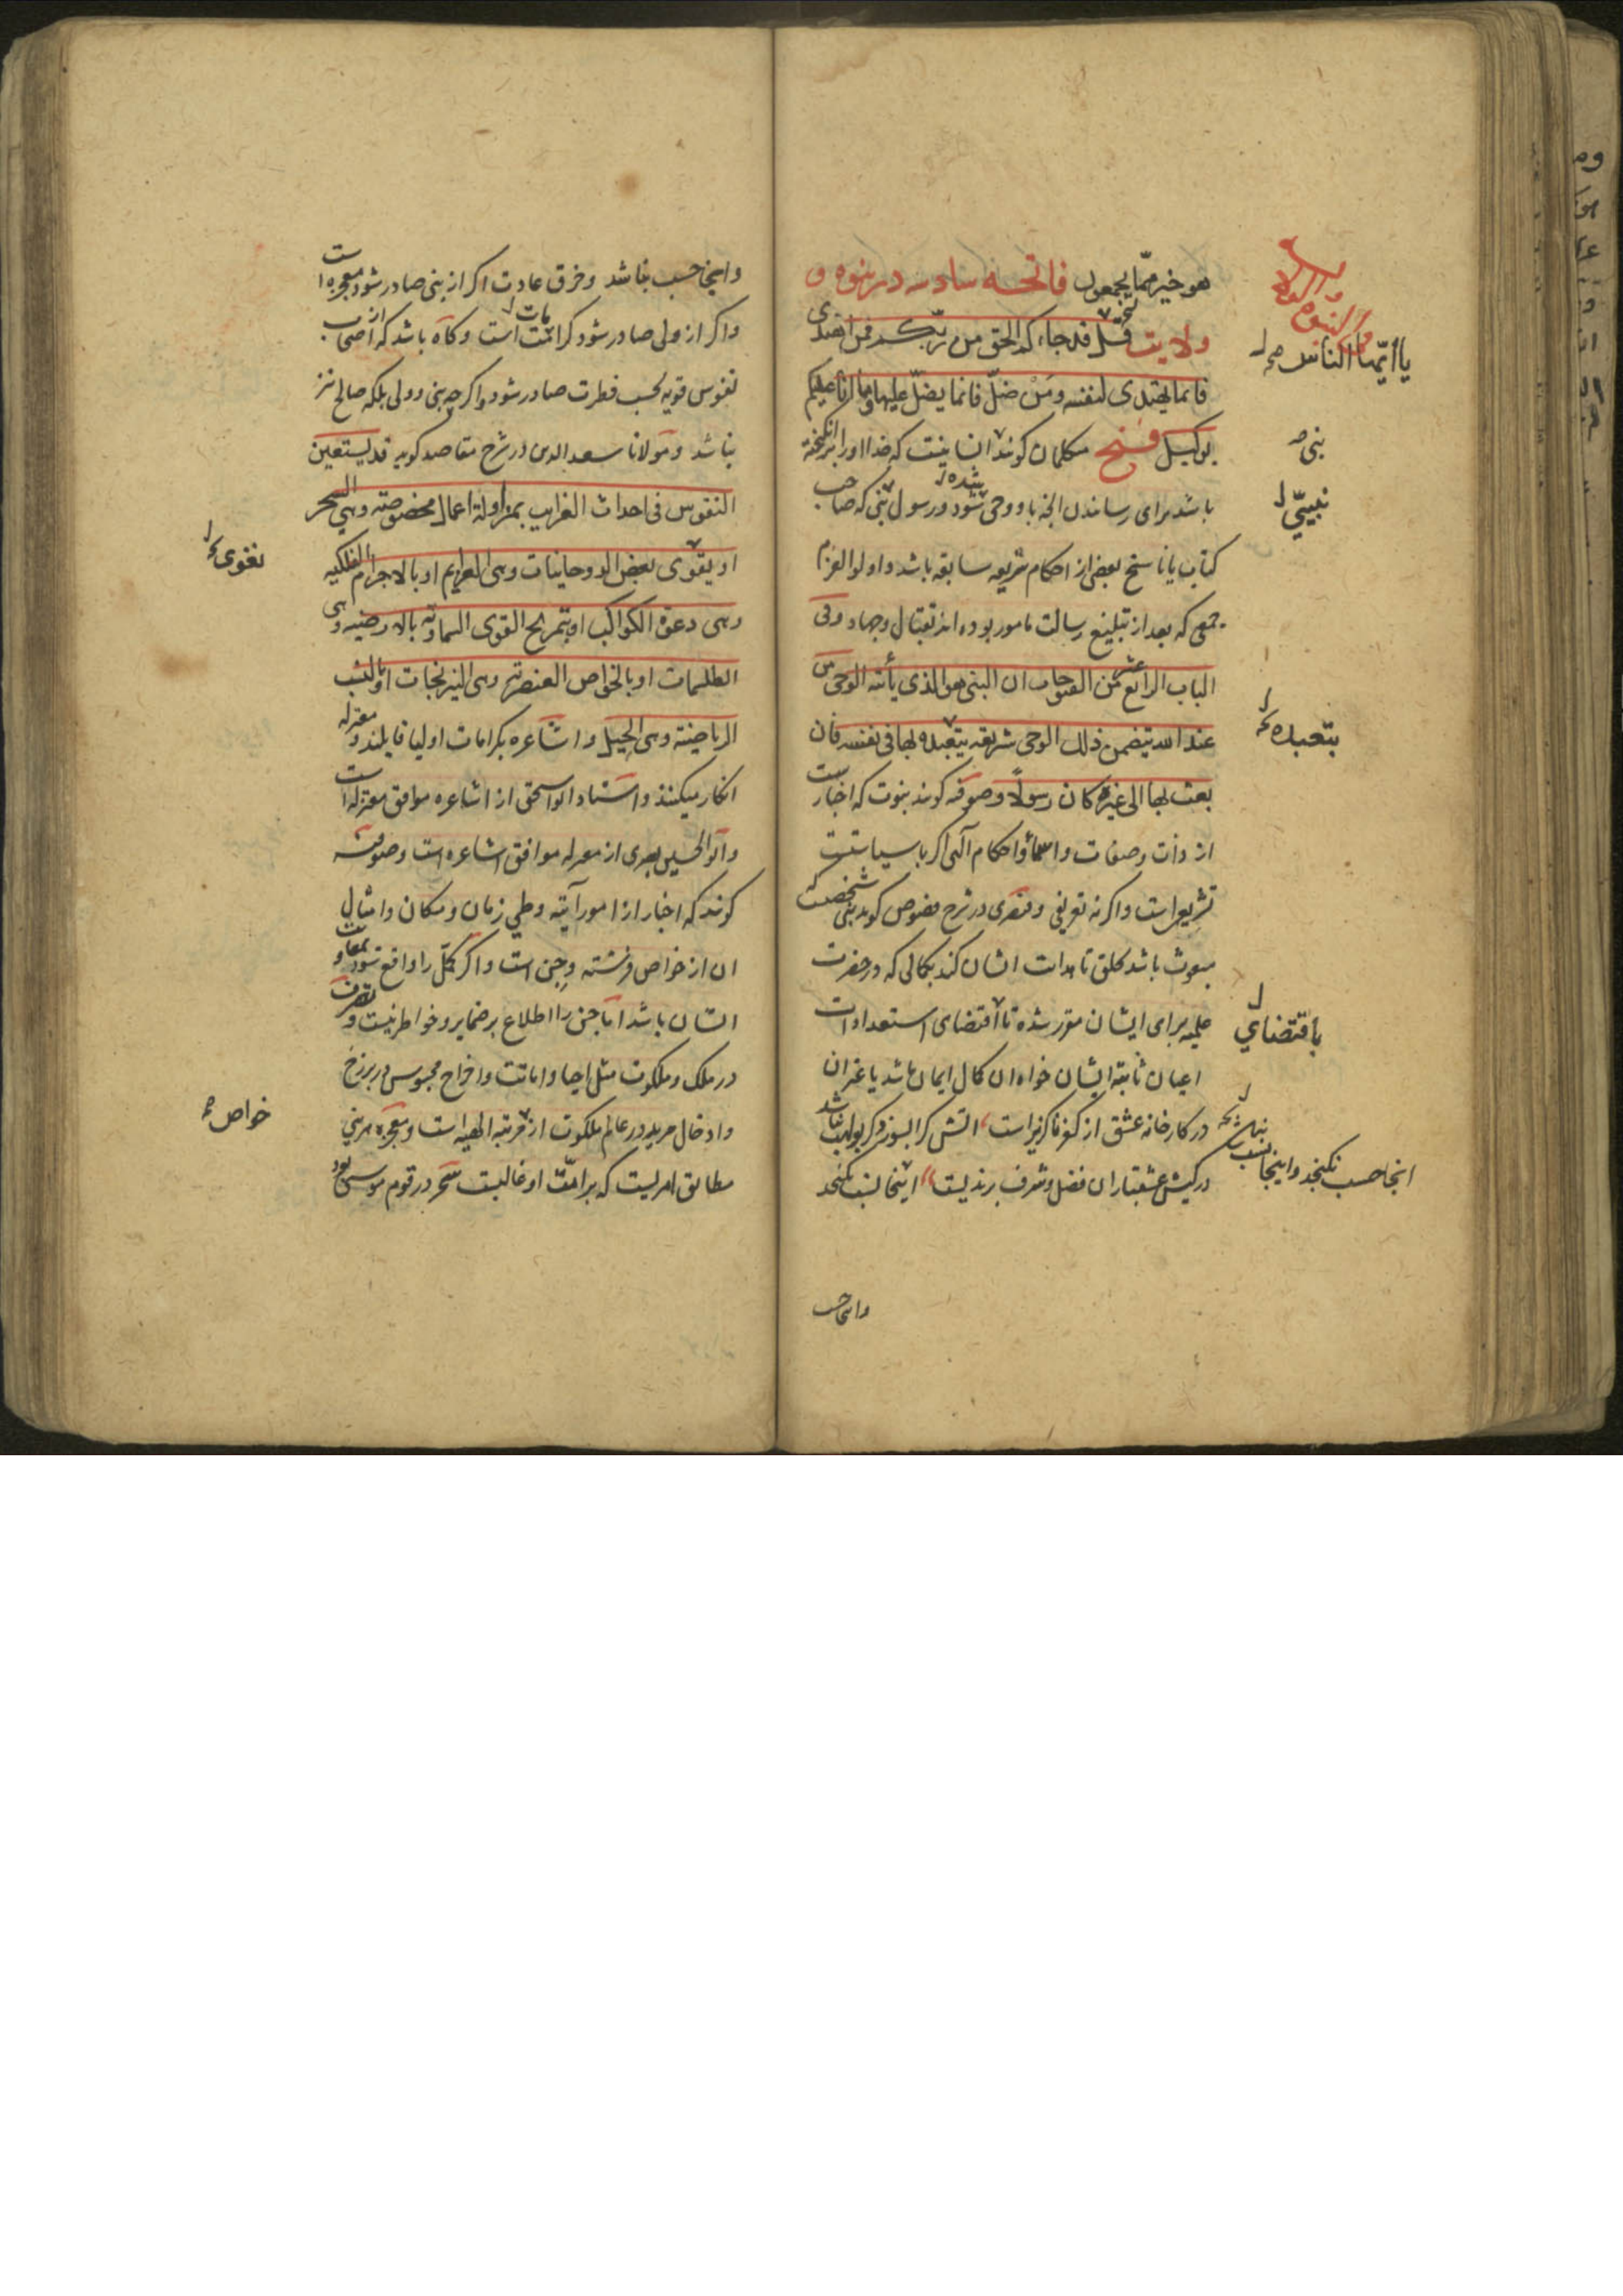 هو خیر مما یجمعون فاتحه سادسه در نبوه و
ولایت قل قد جاءکم الحق من ربکم فمن اهتدی
فانما یهتدی لنفسه ومن ضل فانما یضل علیها وما انا علیکم
بوکیل فتح متکلمان کویند انسانیست که خدا او را برانکیخته
باشد برای رسانیدن انچه باو وحی شود شده و رسول نبی که صاحب
کتاب یا ناسخ بعضی از احکام شریعه سابقه باشد و اولو العزم
جمعی که بعد از تبلیغ رسالت مامور بوده اند بقتال وجهاد وفی
الباب الرابع عشر من الفتوحات ان النبی هو الذی یأتیه الوحی من
عند الله یتضمن ذلک الوحی شریعه یتعبد بها فی نفسه فان
بعث بها الی غیره کان رسولا وصوفیه کویند نبوت که اخبارست
از ذات وصفات واسما واحکام الهی اکر با سیاستست
تشریعی است واکر نه تعریفی و قیصری در شرح فصوص کوید نبی شخصیست که
مبعوث باشد بخلق تا هدایت ایشان کند بکمالی که در حضرت
علمیه برای ایشان مقرر شده تا اقتضای استعدادات
اعیان ثابته ایشان خواه ان کمال ایمان باشد یا غیر ان
در کارخانه عشق از کفر ناکزیر است اتش کرا بسوزد کر بولهب نباشد
در کیش عشقبازان فضل وشرف برندیست اینجا نسب نکنجد
وانجا حسب
یا ایها الناس صح
نبی
نبیی
یتعبده
باقتضای
انجا حسب نکنجد و اینجا نسب نباشد
واینجا حسب نباشد وخرق عادت اکر از نبی صادر شود معجزه است
واکر از ولی صادر شود کرامت است وکاه باشد که از اصحاب
نفوس قویه بحسب فطرت صادر شود واکر چه نبی و ولی بلکه صالح نیز
نباشد ومولانا سعد الدین در شرح مقاصد کوید قد یستعین
النفوس فی احداث الغرایب بمزاولة اعمال مخصوصة وهی السحر
او بقوی بعض الروحانیات وهی العزایم او بالاجرام الفلکیه
وهی دعوة الکواکب او بتمزیج القوی السماویه بالارضیه وهی
الطلسمات او بالخواص العنصریه وهی النیرنجات او بالنسب
الریاضیة وهی الحیل واشاعره بکرامات اولیا قایلند ومعتزله
انکار میکنند واستاد ابو اسحق از اشاعره موافق معتزله است
وابو الحسین بصری از معتزله موافق اشاعره است وصوفیه
کویند که اخبار از امور آتیه وطی زمان ومکان وامثال
ان از خواص فرشته وجن است واکر کمل را واقع شود بمعاونت
ایشان باشد اما جن را اطلاع بر ضمایر وخواطر نیست وتصرف
در ملک وملکوت مثل احیا واماتت واخراج محبوس در برزخ
وادخال مرید در عالم ملکوت از مرتبه الهیه است ومعجزه هر نبی
مطابق امریست که بر امت او غالبست سحر در قوم موسی بود
بقوی
خواص